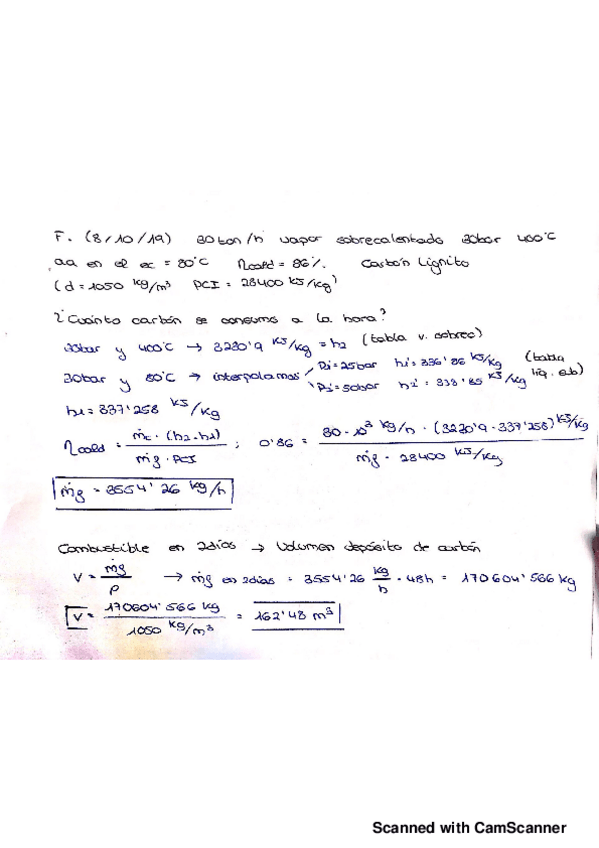 F. (8/10/19) 30 ton/h vapor sobrecalentado 30bar 400°C
aa en el ec = 80°C ηcald = 86%. Carbón Lignito
(d = 1050 kg/m³ PCI = 28400 kJ/kg)
¿Cuánto carbón se consume a la hora?
30bar y 400°C → 3230'9 kJ/kg = h2 (tabla v. sobrec)
30bar y 80°C → interpolamos Pi = 25bar hi = 336'86 kJ/kg (tabla
Ps = 50bar h2' = 338'85 kJ/kg liq. sub)
h1 = 337'258 kJ/kg
ηcald = ṁc · (h2 - h1) / ṁg · PCI ; 0'86 = 30 · 10³ kg/h · (3230'9 - 337'258) kJ/kg / ṁg · 28400 kJ/kg
ṁg = 3554'26 kg/h
Combustible en 2días → Volumen depósito de carbón
V = ṁg / ρ → ṁg en 2días = 3554'26 kg/h · 48h = 170604'566 kg
V = 170604'566 kg / 1050 kg/m³ = 162'48 m³
Scanned with CamScanner